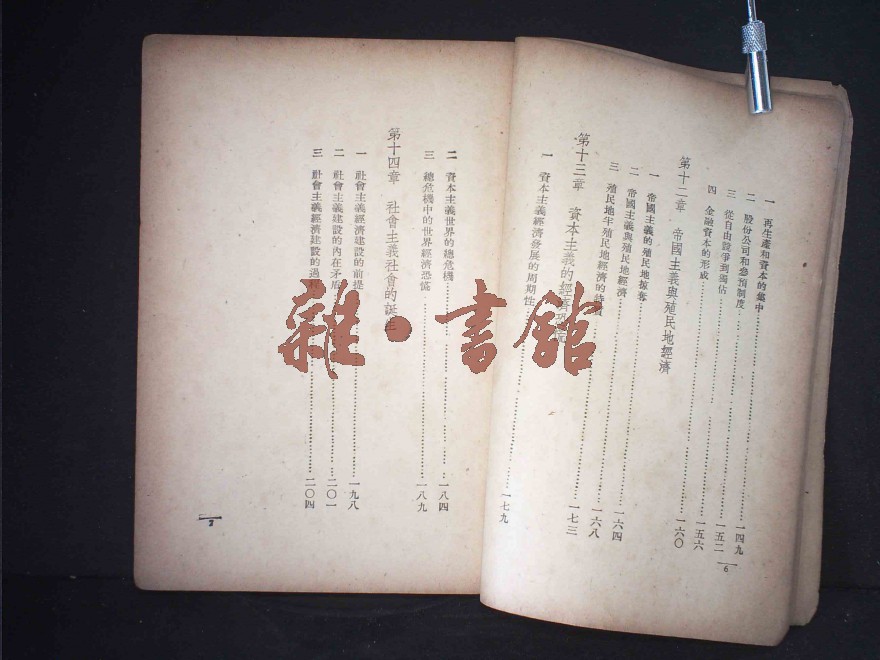 一 再生產和資本的集中……一四九
二 股份公司和參預制度……一五二
三 從自由競爭到獨佔……一五六
四 金融資本的形成……一六〇
第十二章 帝國主義與殖民地經濟
一 帝國主義的殖民地掠奪……一六四
二 帝國主義與殖民地經濟……一六八
三 殖民地半殖民地經濟的特……一七三
第十三章 資本主義的經
一 資本主義經濟發展的周期性……一七九
6
二 資本主義世界的總危機……一八四
三 總危機中的世界經濟恐慌……一八九
第十四章 社會主義社會的誕生
一 社會主義經濟建設的前提……一九八
二 社會主義建設的內在矛盾……二〇一
三 社會主義經濟建設的過程……二〇四
7
雜·書館